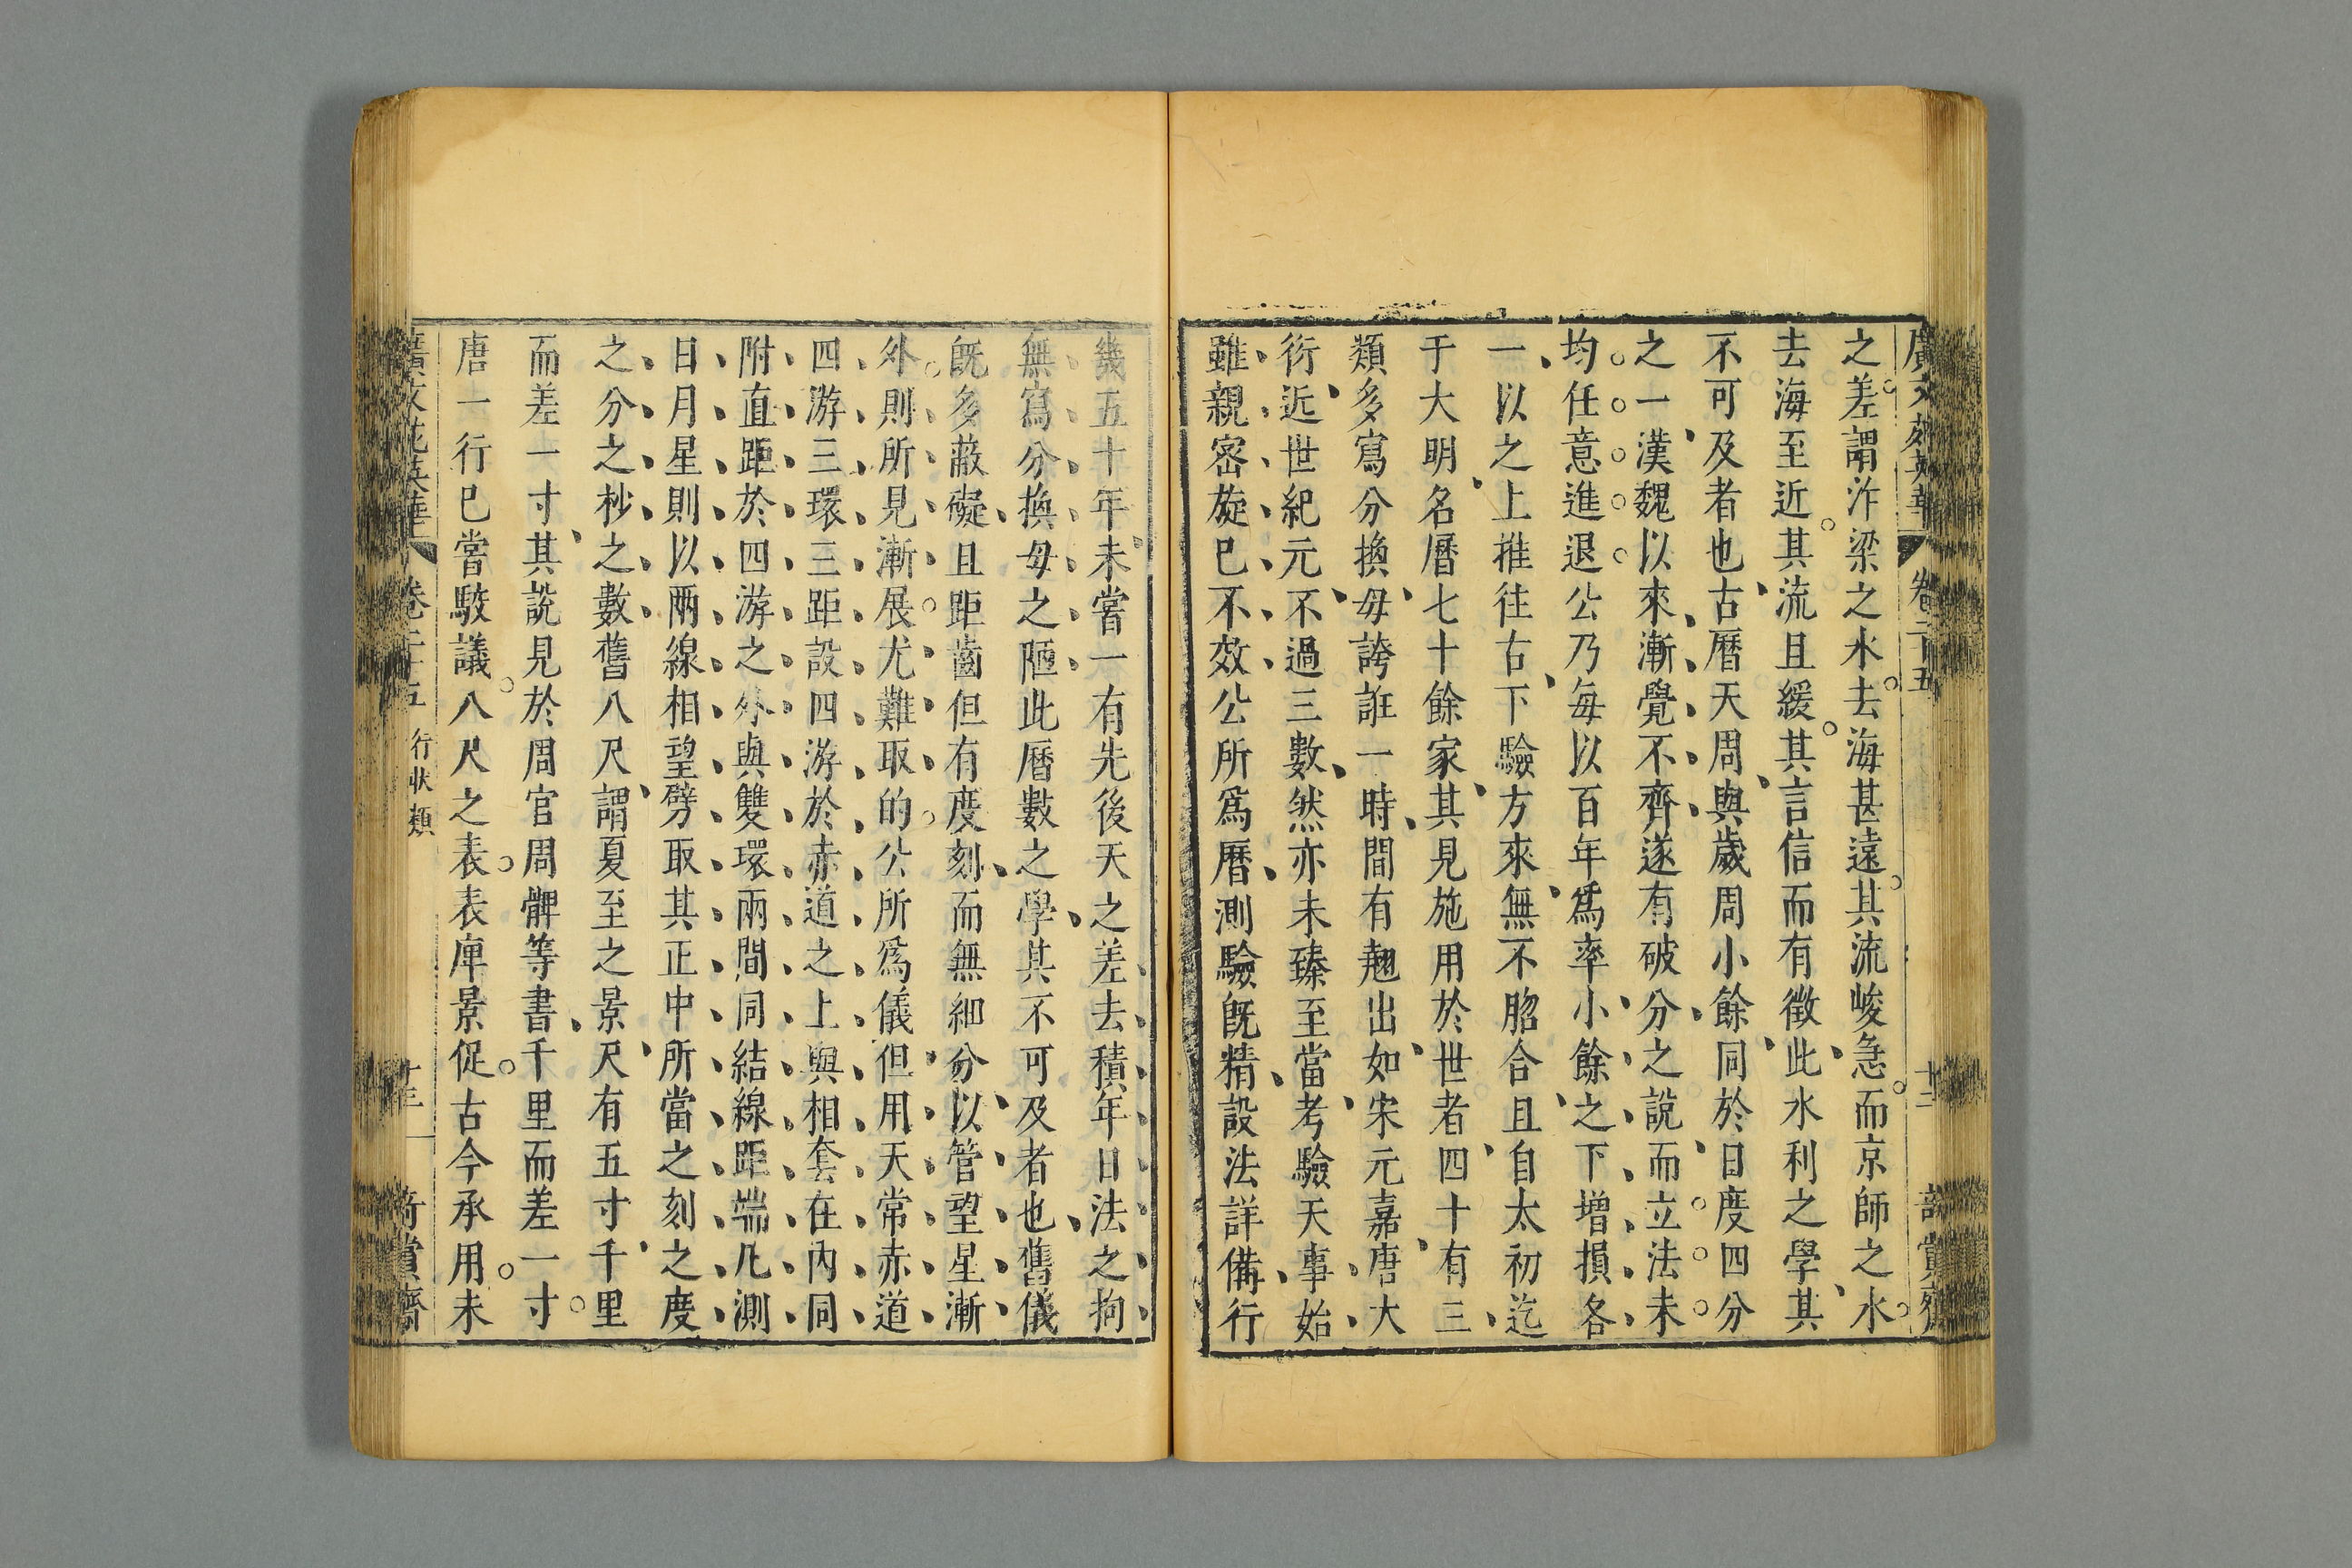 廣文苑英華 卷二十五
之差謂汴梁之水去海甚遠其流峻急而京師之水
去海至近其流且緩其言信而有徵此水利之學其
不可及者也古曆天周與歲周小餘同於日度四分
之一漢魏以來漸覺不齊遂有破分之說而立法未
均任意進退公乃每以百年爲率小餘之下增損各
一以之上推往古下驗方來無不脗合且自太初迄
于大明名曆七十餘家其見施用於世者四十有三
類多寫分換母誇誑一時間有翹出如宋元嘉唐大
衍近世紀元不過三數然亦未臻至當考驗天事始
雖親密旋已不效公所爲曆測驗旣精設法詳備行
幾五十年未嘗一有先後天之差去積年日法之拘
無寫分換母之陋此曆數之學其不可及者也舊儀
旣多蔽礙且距齒但有度刻而無細分以管望星漸
外則所見漸展尤難取的公所爲儀但用天常赤道
四游三環三距設四游於赤道之上與相套在內同
附直距於四游之外與雙環兩間同結線距端凡測
日月星則以兩線相望劈取其正中所當之刻之度
之分之杪之數舊八尺謂夏至之景尺有五寸千里
而差一寸其說見於周官周髀等書千里而差一寸
唐一行已嘗駮議八尺之表表庳景促古今承用未
廣文苑英華 卷二十五 行狀類 賞齋